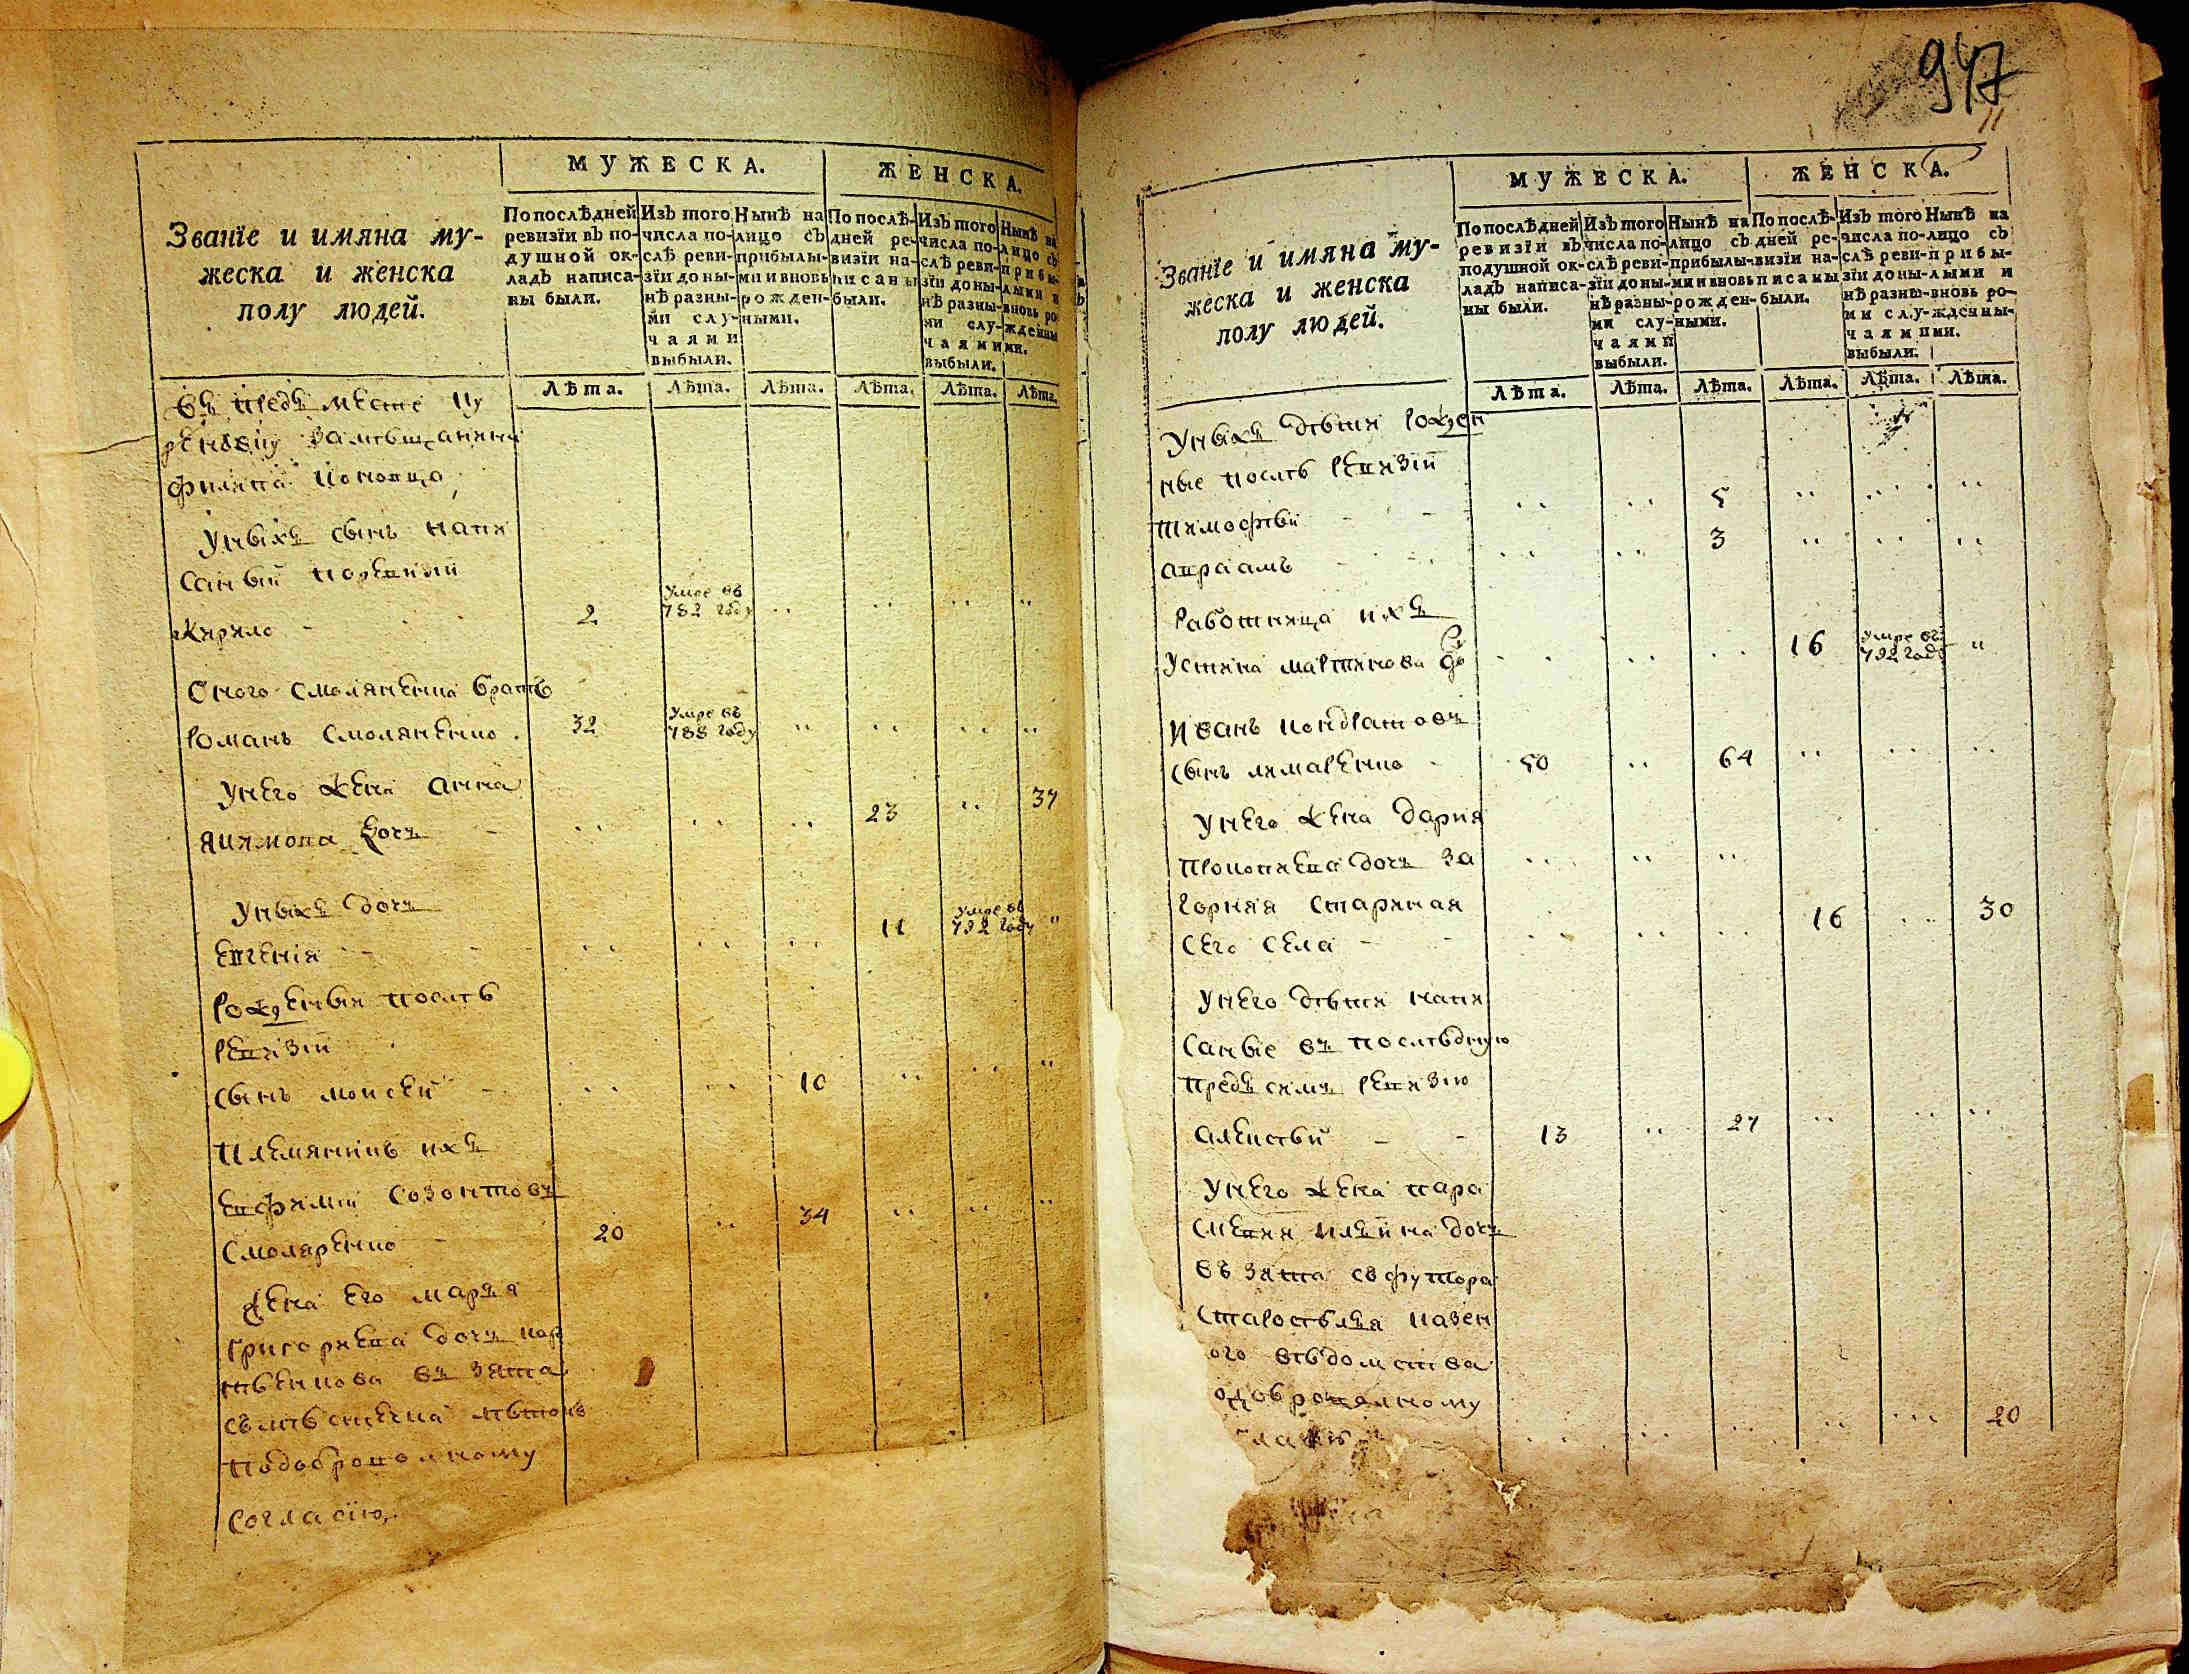 МУЖЕСКА.
ЖЕНСКА.
Званїе и имяна му-
жеска и женска
полу людей.
По послѣдней
ревизїи въ по-
душной ок-
ладъ написа-
ны были.
Изъ того
числа по-
слѣ реви-
зїи до ны-
нѣ разны-
ми слу-
чаями
выбыли.
Нынѣ на
лицо съ
прибылы-
ми и вновь
рожден-
ными.
По послѣ-
дней ре-
визїи на-
писаны
были.
Изъ того
числа по-
слѣ реви-
зїи до ны-
нѣ разны-
ми слу-
чаями
выбыли.
Нынѣ на
лицо съ
прибы-
лыми и
вновь ро-
жденны
ми.
Лѣта. Лѣта. Лѣта. Лѣта. Лѣта. Лѣта.
въ предъместе
Филипа
Унихъ сынъ напи
санъй по ревизїи
Кирило 2 умре въ 782 году
Оного Смоляненка братъ
Романъ Смоляненко 32 умре въ 788 году
Унего жена Анна
Якимова дочъ 23 37
Унихъ дочъ
Евгенія 11 умре въ 792 году
Рожденыи послѣ
ревизіи
Сынъ Моисей 10
Племянникъ ихъ
Евфимїй Созонтовъ
Смоляренко 20 34
Жена его Маръя
Григориева дочъ
въ зята
подоброволному
согласїю,
947
11
МУЖЕСКА.
ЖЕНСКА.
Званїе и имяна му-
жеска и женска
полу людей.
По послѣдней
ревизїи въ
подушной ок-
ладъ написа-
ны были.
Изъ того
числа по-
слѣ реви-
зїи до ны-
нѣ разны-
ми слу-
чаями
выбыли.
Нынѣ на
лицо съ
прибылы-
ми и вновь
рожден-
ными.
По послѣ-
дней ре-
визїи на-
писаны
были.
Изъ того
числа по-
слѣ реви-
зїи до ны-
нѣ разны-
ми слу-
чаями
выбыли.
Нынѣ на
лицо съ
прибы-
лыми и
вновь ро-
жденны-
ми.
Лѣта. Лѣта. Лѣта. Лѣта. Лѣта. Лѣта.
Унихъ дѣти рожден
ные послѣ ревизїи
Тимофѣй 5
Авраамъ 3
Работница ихъ
Устина Мартинова 16 умре въ 792 году
Иванъ Кондратовъ
сынъ Лимаренко 50 64
Унего жена Дария
Прокопиева дочъ За
горная стариная
сего села 16 30
Унего дѣти напи
саные въ послѣднюю
предъ симъ ревизію
Алексѣй 13 27
Унего жена Пара
скевия дочъ
въ зята съ футора
казен
ого вѣдомства
одоброволному
20